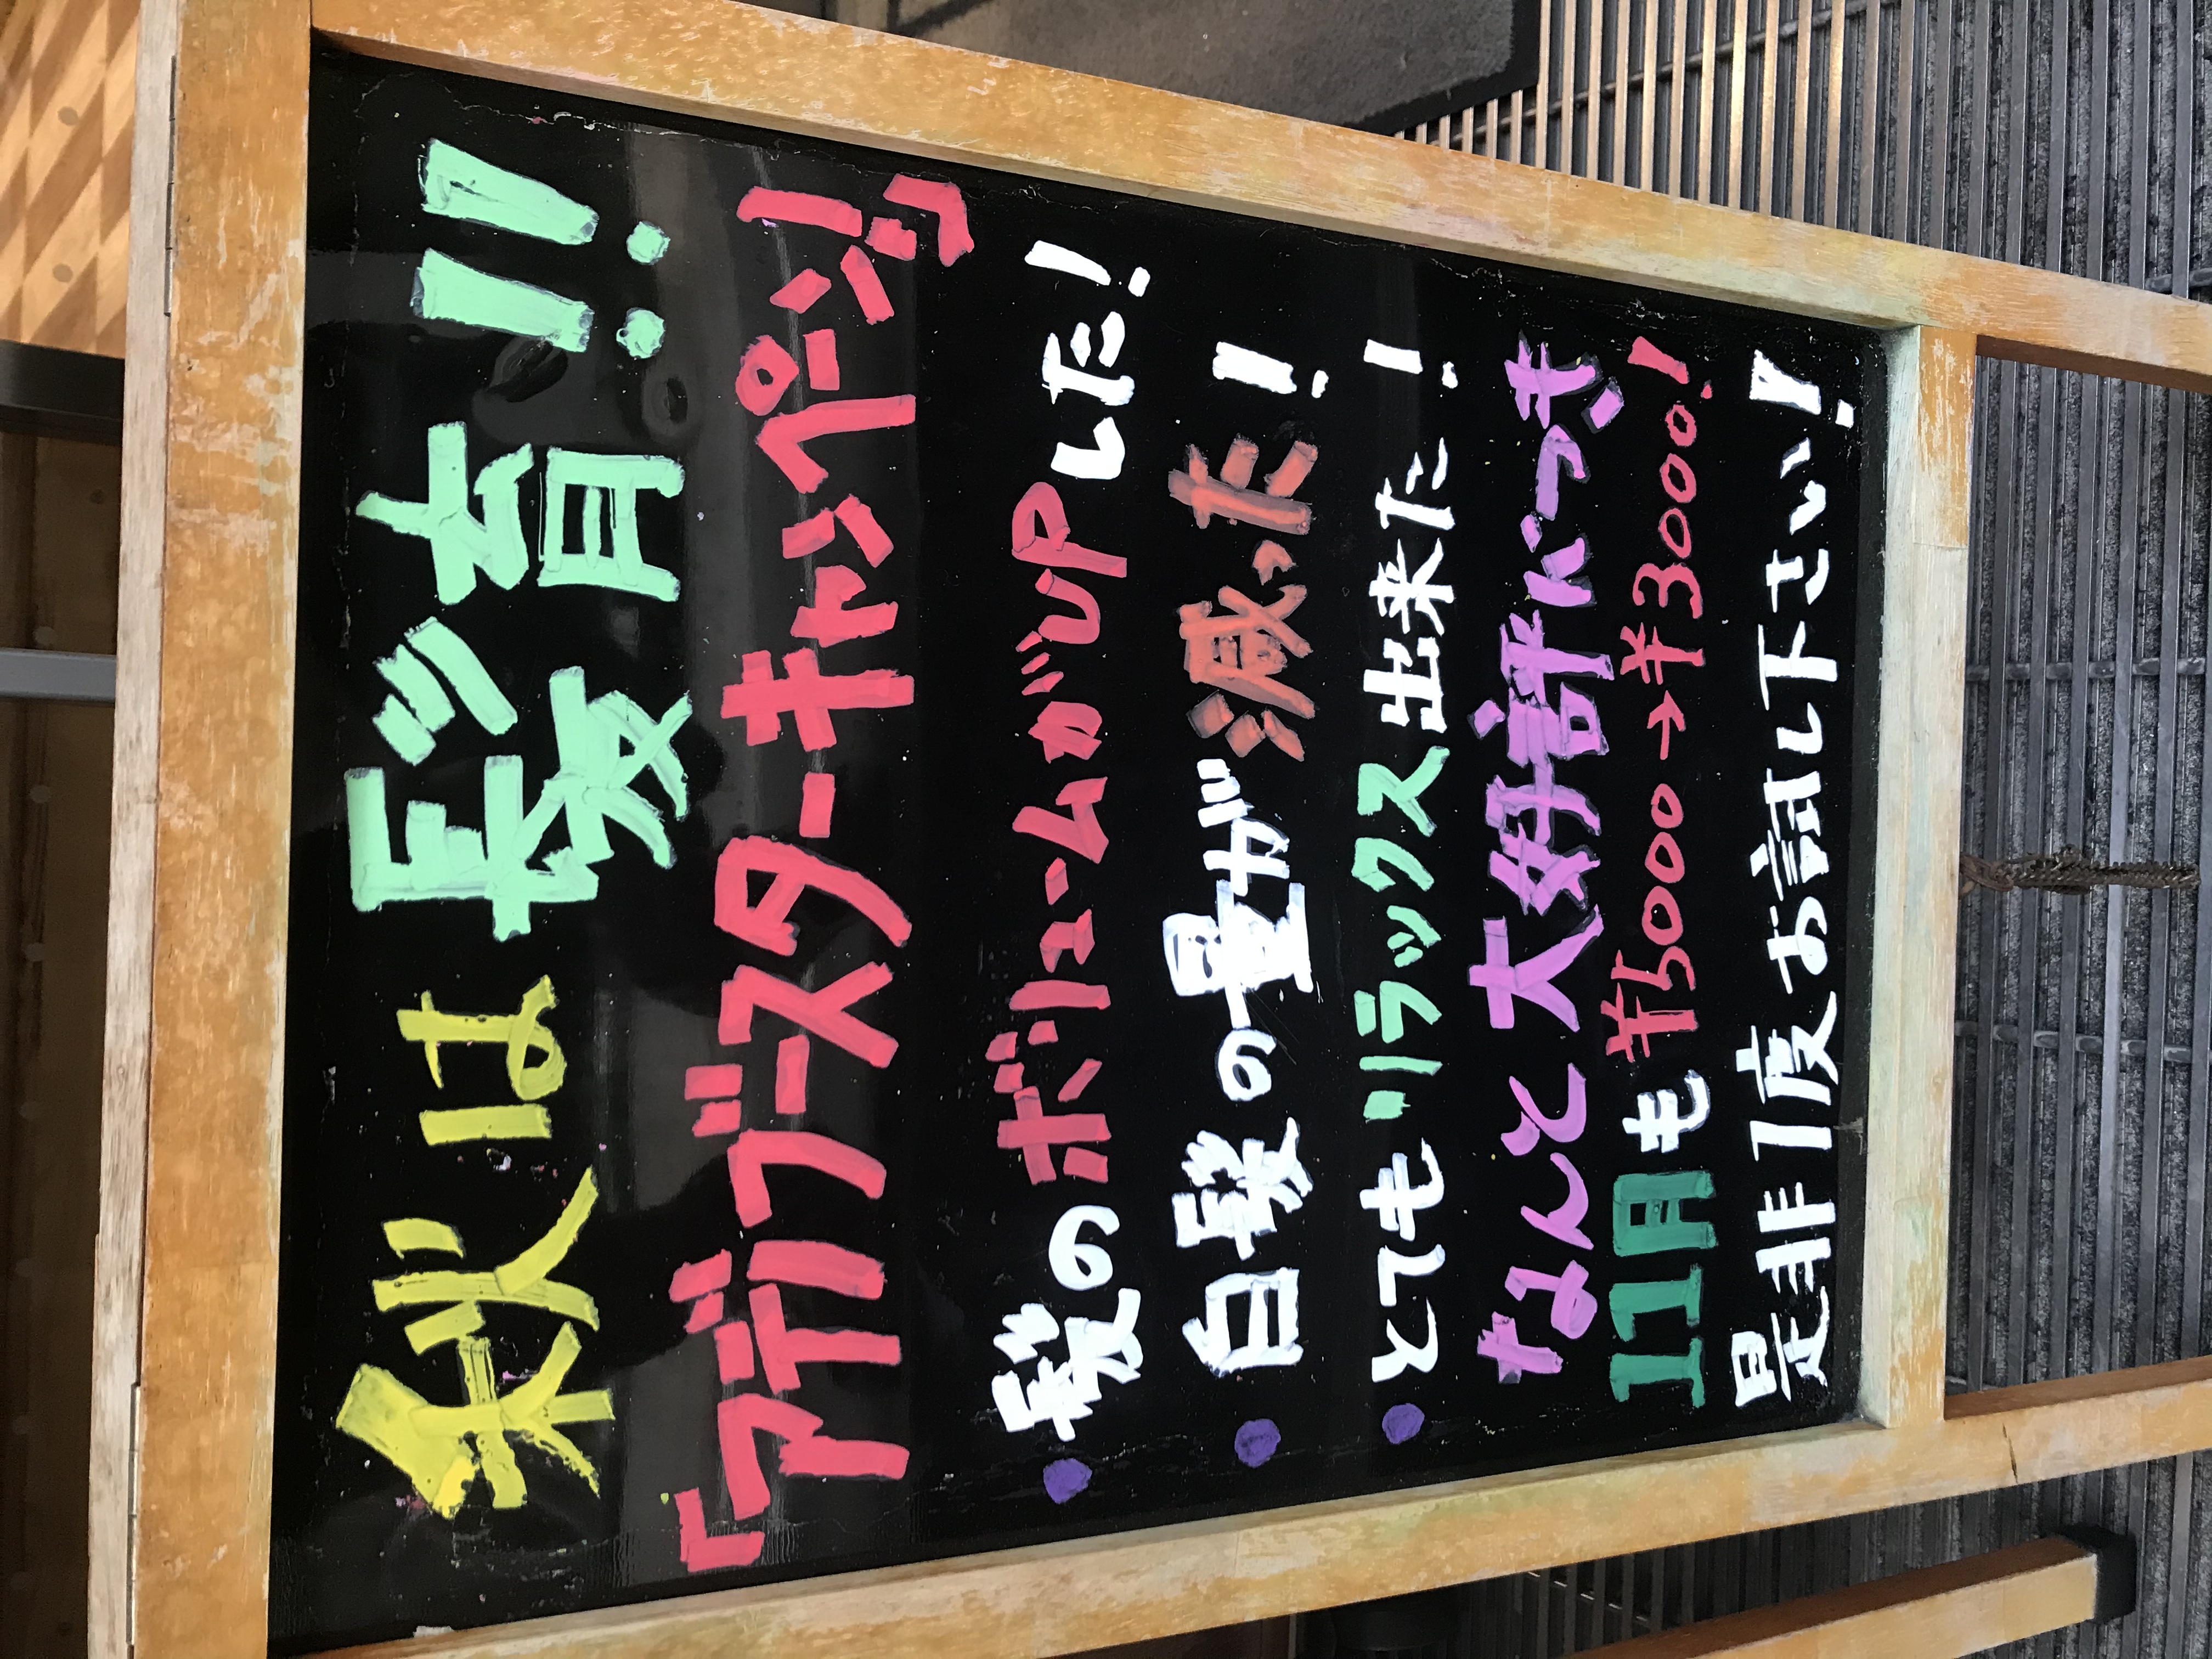 秋は髪育!!
「アデリブースターキャンペーン」
●髪のボリュームがUPした!
●白髪の量が減った!
●とてもリラックス出来た!
なんと大好評につき
11月も¥5000→¥3000!
是非1度お試し下さい!